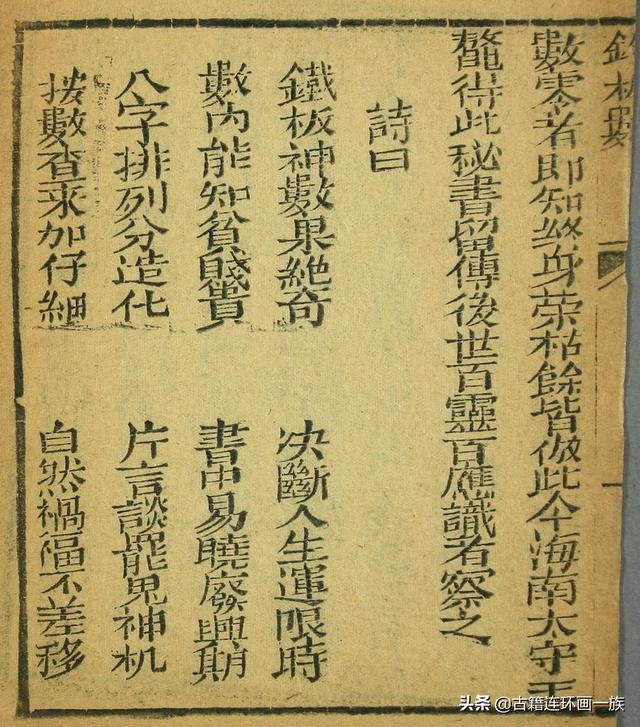 板數
數零者即知終身荣枯餘皆倣此今海南太守王
鰲得此秘書留傳後世百靈百應識者察之
詩曰
鐵板神數果絶奇　决斷人生運限時
數内能知貧賤貴　書中易曉廢興期
八字排列分造化　片言談罷鬼神机
按數查来加仔細　自然禍福不差移
头条 @古籍连环画一族